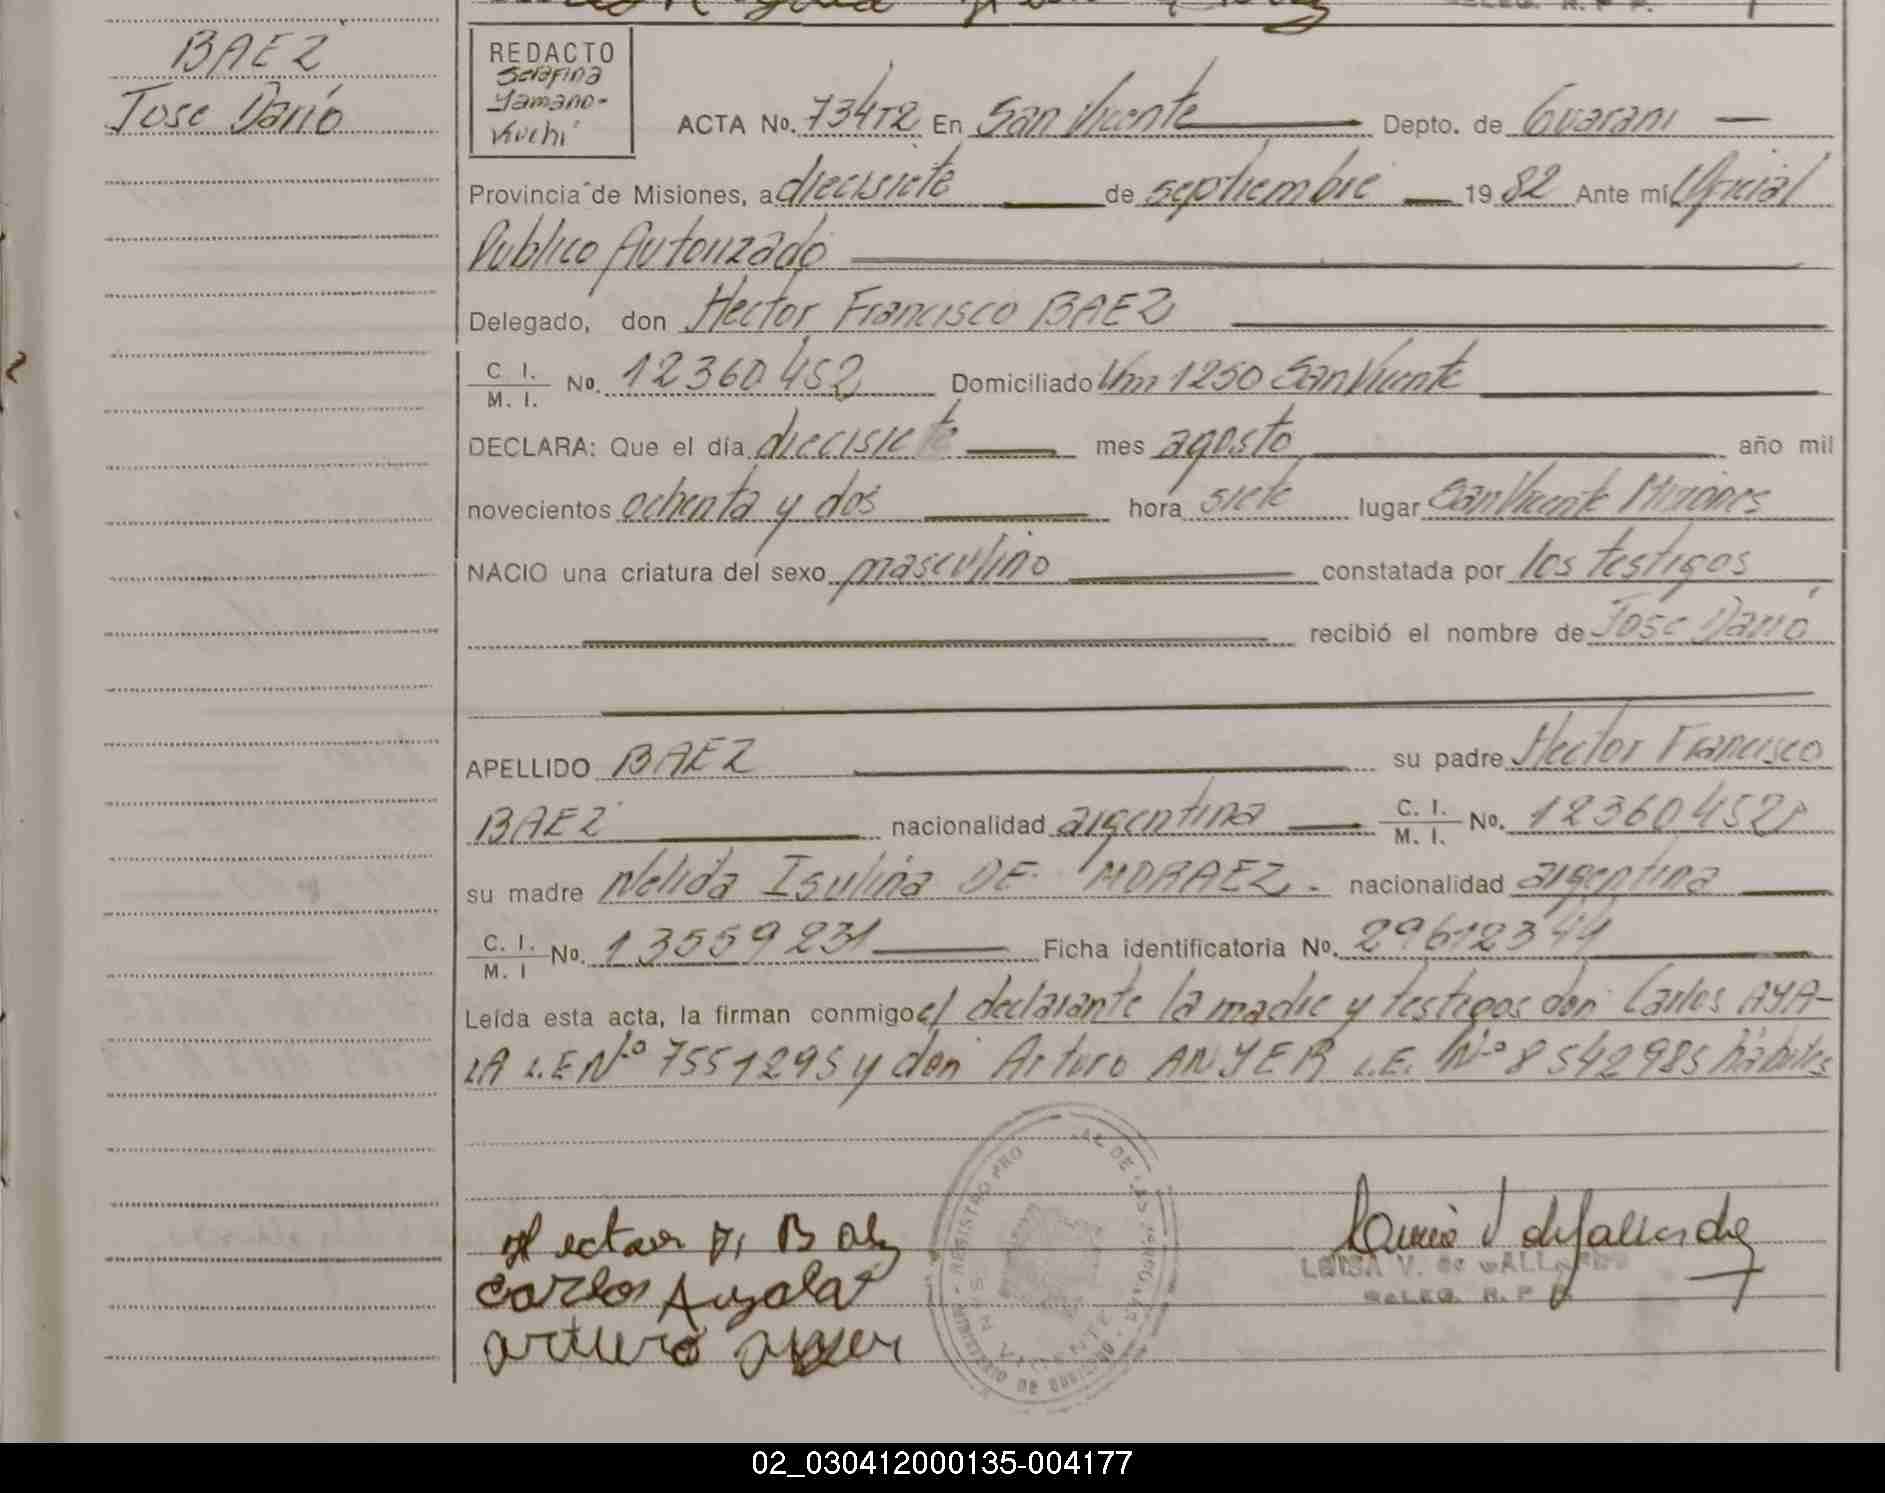 BAEZ
Jose Darío
REDACTO
Serafina
Yamano-
Kuchi
ACTA No. 734T2 En San Vicente Depto. de Guarani
Provincia de Misiones, a diecisiete de septiembre 1982 Ante mí Oficial
Publico Autorizado
Delegado, don Hector Francisco BAEZ
C. I. / M. I. No. 12360452 Domiciliado Km 1250 San Vicente
DECLARA: Que el día diecisiete mes agosto año mil
novecientos ochenta y dos hora siete lugar San Vicente Misiones
NACIO una criatura del sexo masculino constatada por los testigos
recibió el nombre de Jose Darió
APELLIDO BAEZ su padre Hector Francisco
BAEZ nacionalidad argentina C. I. / M. I. No. 12360452
su madre Nelida Isulina DE MORAEZ. nacionalidad argentina
C. I. / M. I No. 13559231 Ficha identificatoria No. 29612344
Leída esta acta, la firman conmigo el declarante la madre y testigos don Carlos AYA-
LA L.E Nº 7551295 y don Arturo ANYER L.E. Nº 8542985 hábiles
Hector F. Baez
Carlos Ayala
arturo
REGISTRO PRO AL DE LAS PERSONAS
MINISTERIO DE GOBIERNO
SAN VICENTE
LUISA V. de
DELEG. R. P. P.
02_030412000135-004177